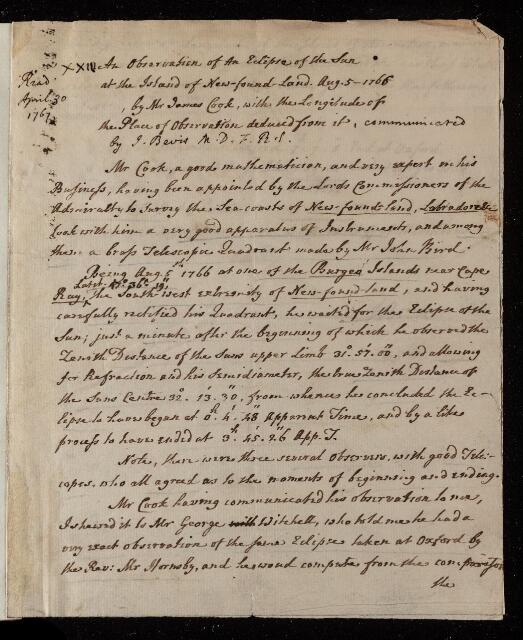 XXIV An Observation of An Eclipse of the Sun
Read
April 30
1767
at the Island of New-found-Land. Aug. 5-1766
, by Mr James Cook, with the Longitude of
the Place of Observation deduced from it, communicated
by J. Bevis M. D. F. R. S.
Mr Cook, a good mathematician, and very expert in his
Business, having been appointed by the Lords Commissioners of the
Admiralty to survey the Sea-coasts of New-found-land, Labradore &c
took with him a very good apparatus of Instruments, and among
them a brass Telescopic Quadrant made by Mr John Bird.
Being Aug. 5th 1766 at one of the Burgeo Islands near Cape
Latit. 47° 36' 19"
Ray, the South-west extremity of New-found-land, and having
carefully rectified his Quadrant, he waited for the Eclipse of the
Sun; just a minute after the beginning of which he observed the
Zenith Distance of the Suns upper Limb 31°. 57'. 00", and allowing
for Refraction and his Semidiameter, the true Zenith Distance of
the Suns Centre 32°. 13'. 30", from whence he concluded the Ec-
lipse to have began at 0h. 4'. 48" Apparent Time, and by a like
process to have ended at 3h. 45'. 26" App. T.
Note, there were three several Observers, with good Tele-
copes, who all agreed as to the moments of beginning and ending.
Mr Cook having communicated his observation to me,
I shewed it to Mr George Witchell, who told me he had a
very exact observation of the same Eclipse taken at Oxford by
the Rev: Mr Hornsby, and he woud compute from the comparison
the